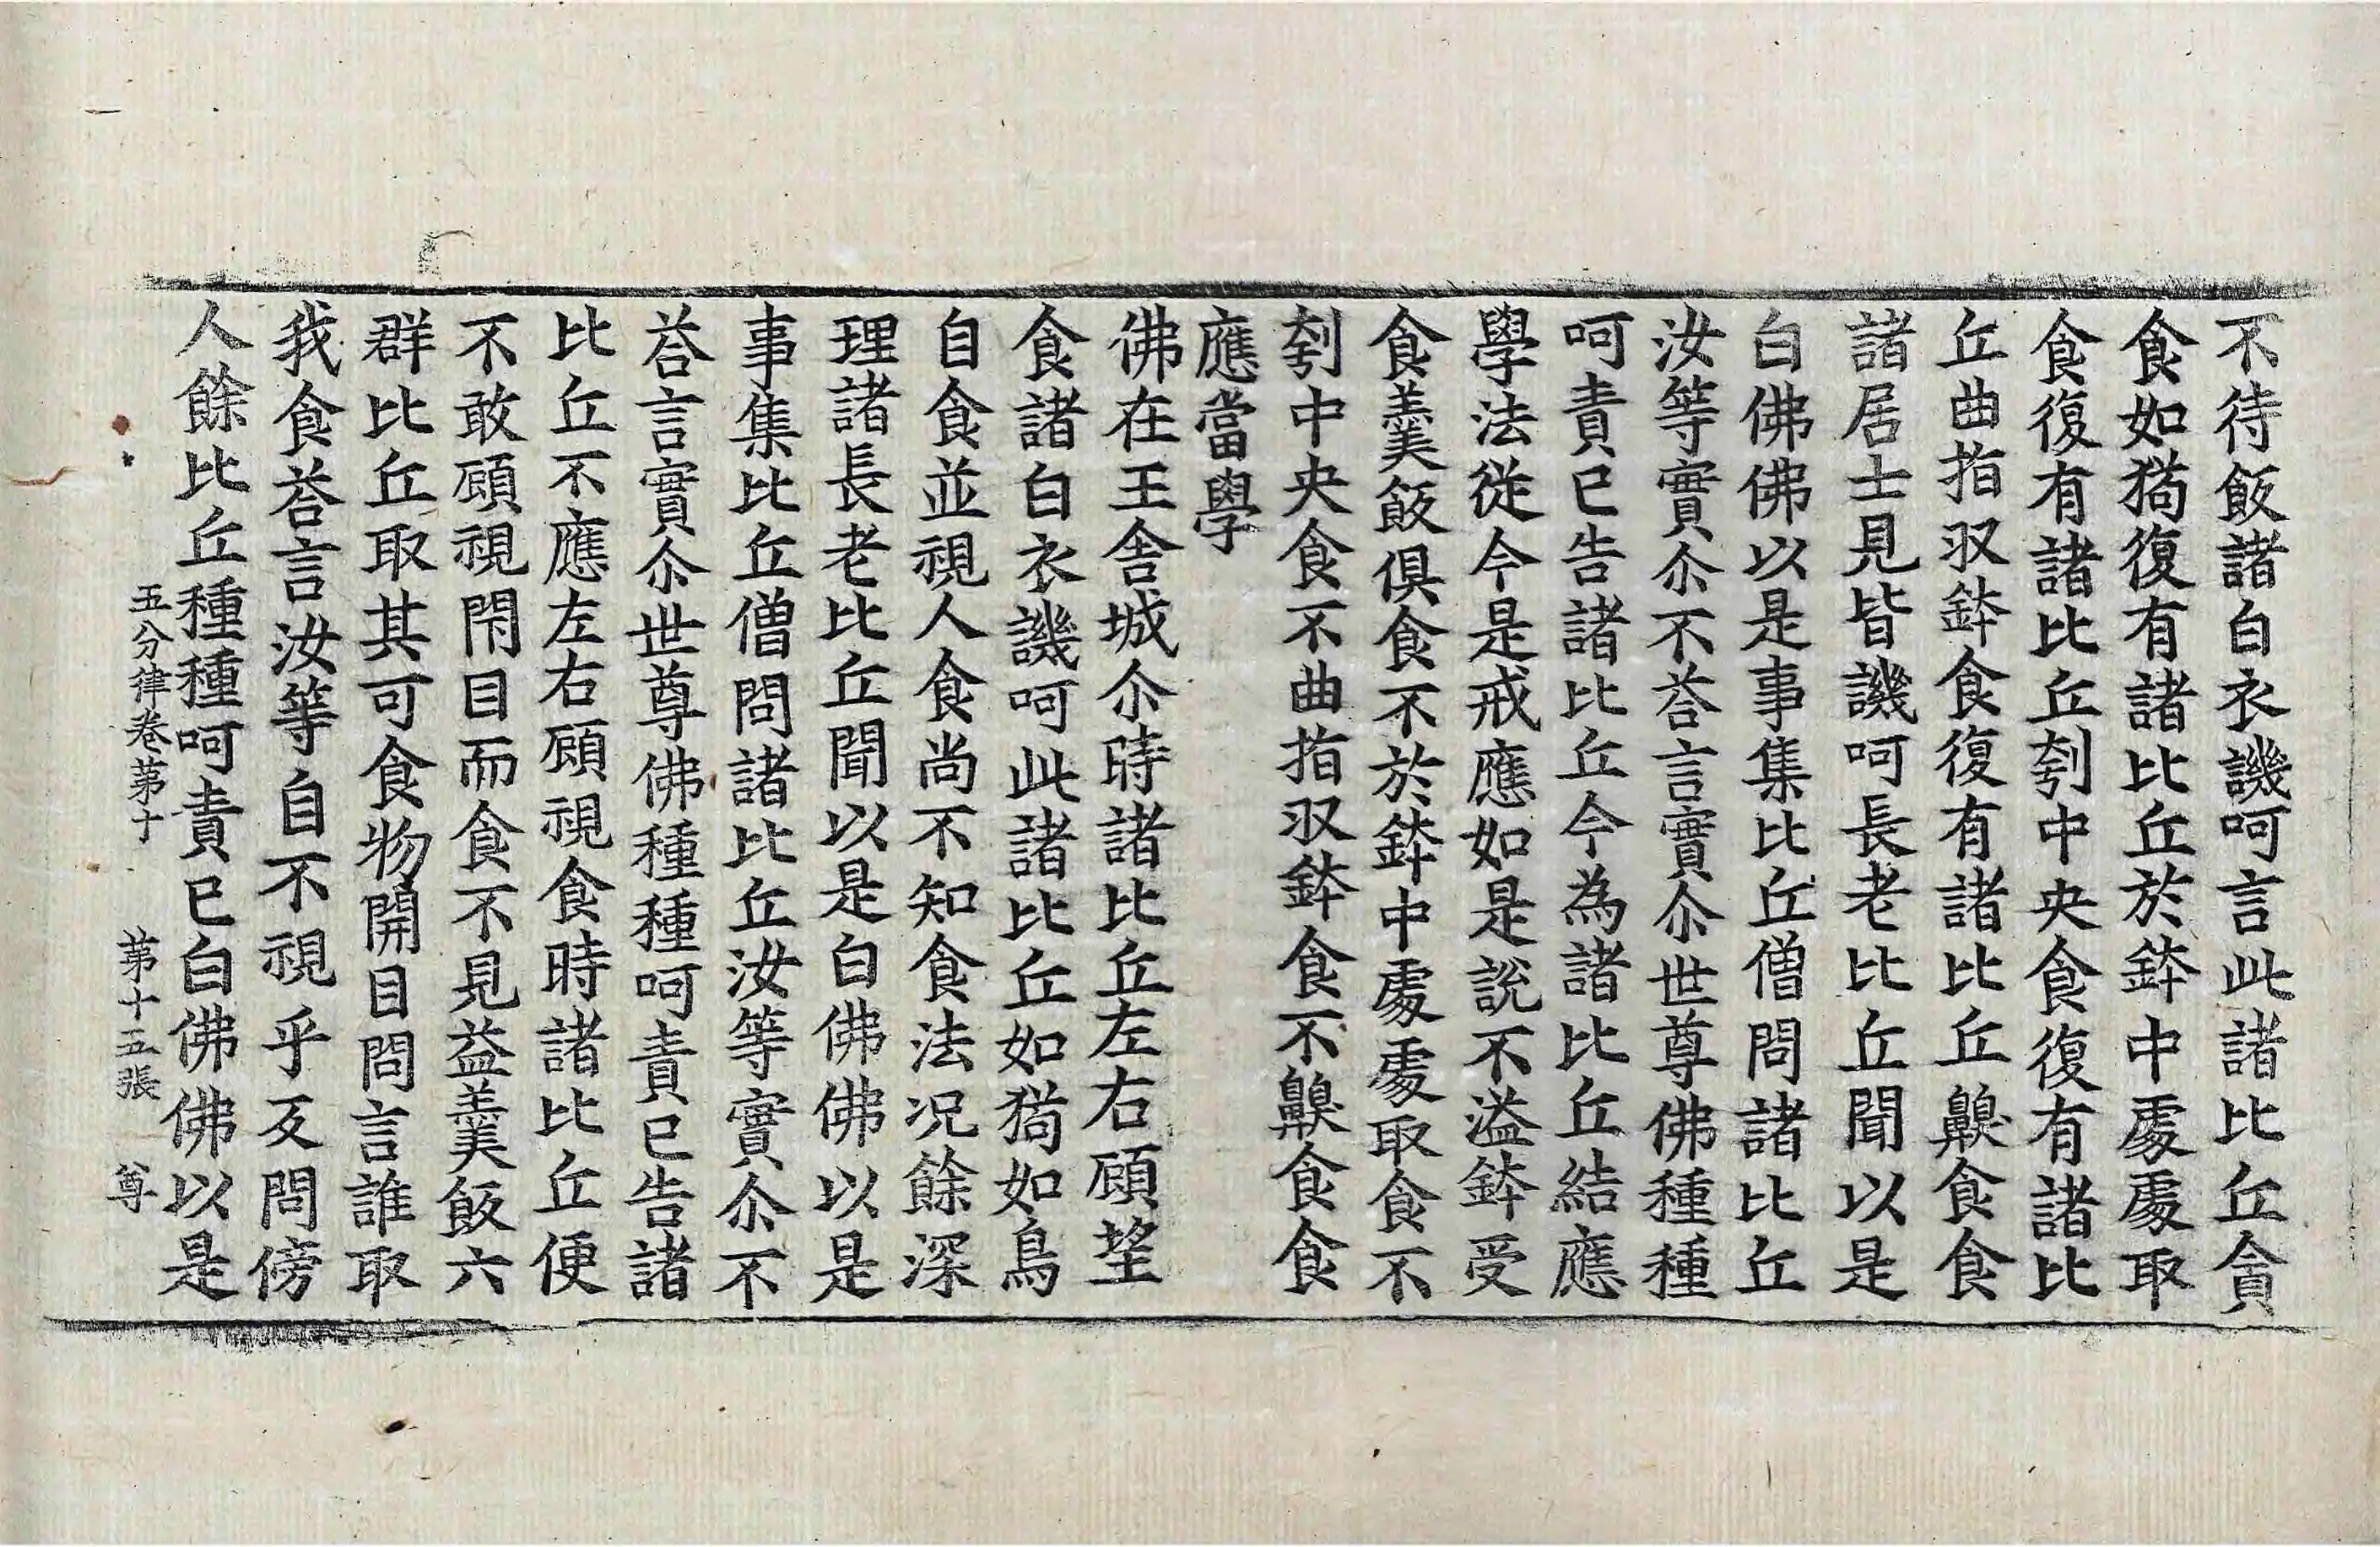 不待飯諸白衣譏呵言此諸比丘貪
食如猗復有諸比丘於鉢中處處取
食復有諸比丘刳中央食復有諸比
丘曲指収鉢食復有諸比丘齅食食
諸居士見皆譏呵長老比丘聞以是
白佛佛以是事集比丘僧問諸比丘
汝等實尒不荅言實尒世尊佛種種
呵責已告諸比丘今為諸比丘結應
學法從今是戒應如是說不溢鉢受
食羹飯俱食不於鉢中處處取食不
刳中央食不曲指収鉢食不齅食食
應當學
佛在王舍城尒時諸比丘左右顧望
食諸白衣譏呵此諸比丘如猗如鳥
自食並視人食尚不知食法况餘深
理諸長老比丘聞以是白佛佛以是
事集比丘僧問諸比丘汝等實尒不
荅言實尒世尊佛種種呵責已告諸
比丘不應左右顧視食時諸比丘便
不敢顧視閇目而食不見益羹飯六
群比丘取其可食物開目問言誰取
我食荅言汝等自不視乎反問傍
人餘比丘種種呵責已白佛佛以是
五分律卷第十 第十五張 尊